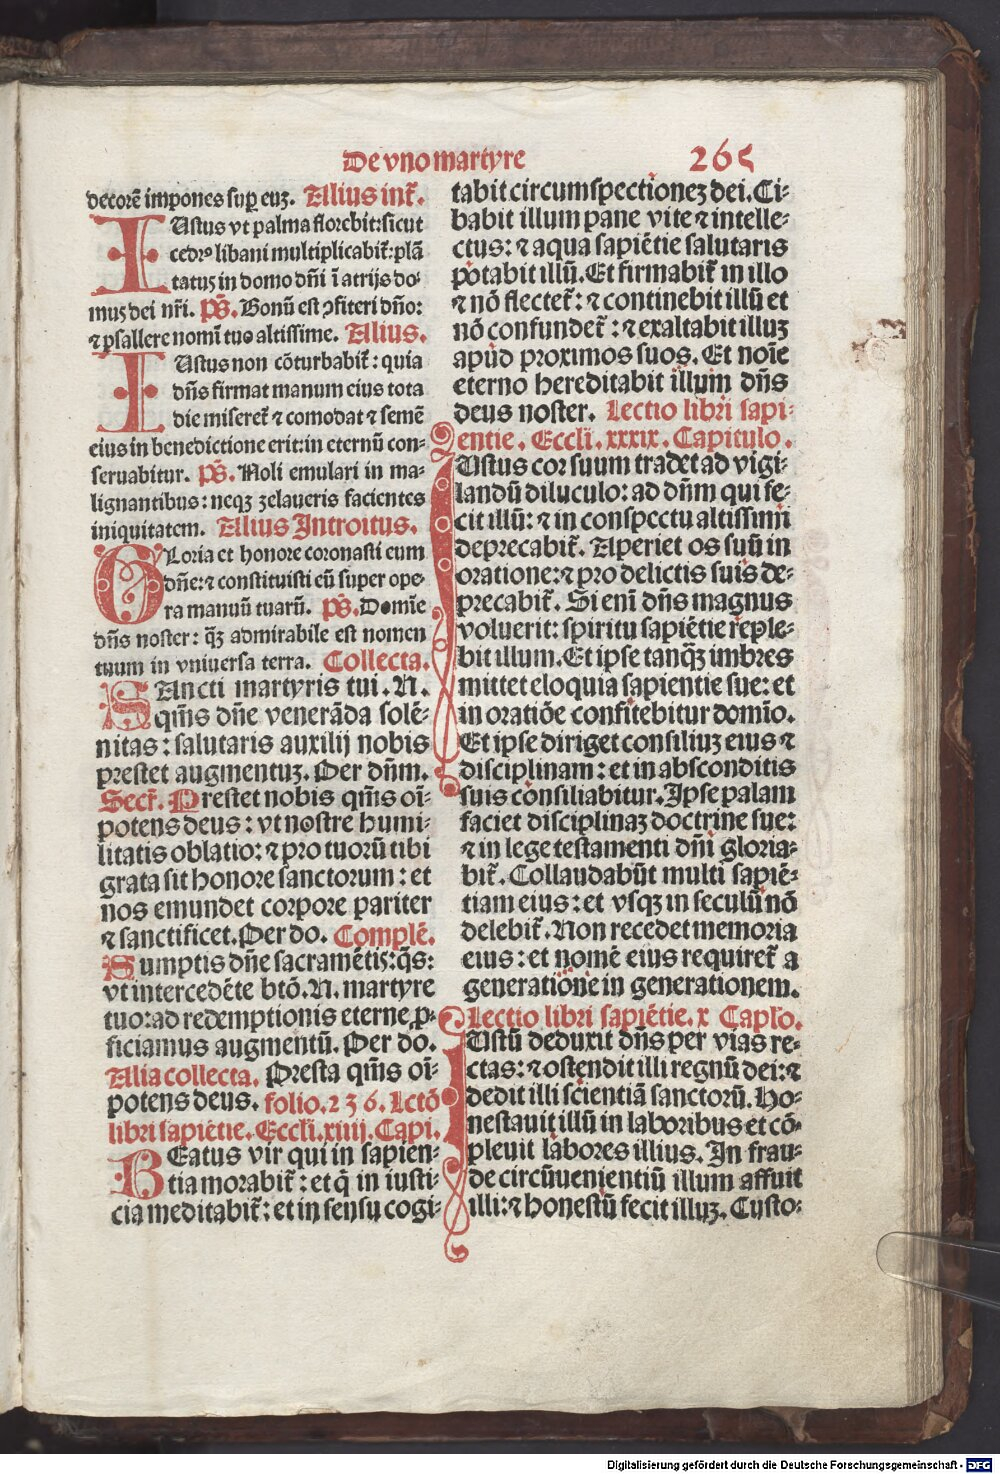 De vno martyre 265
decorē impones sup euꝫ. Alius int̄.
IUstus vt palma florebit: sicut
cedrꝰ libani multiplicabit̄: plā
tatuꝫ in domo dn̄i ī atrijs do⸗
muꝫ dei nr̄i. p̄s. Bonū est ꝯfiteri dn̄o:
⁊ psallere nomī tuo altissime. Alius.
IUstus non cōturbabit̄: quia
dn̄s firmat manum eius tota
die miseret̄ ⁊ comodat ⁊ semē
eius in benedictione erit: in eternū con⸗
seruabitur. p̄s. Noli emulari in ma⸗
lignantibus: neqꝫ zelaueris facientes
iniquitatem. Alius Introitus.
GLoria et honore coronasti eum
dn̄e: ⁊ constituisti eū super ope
ra manuū tuarū. p̄s. Domīe
dn̄s noster: q̄ꝫ admirabile est nomen
tuum in vniuersa terra. Collecta.
SAncti martyris tui. N.
qm̄s dn̄e venerāda solē⸗
nitas: salutaris auxilij nobis
prestet augmentuꝫ. Per dn̄m.
Secr̄. Prestet nobis qm̄s oī⸗
potens deus: vt nostre humi⸗
litatis oblatio: ⁊ pro tuorū tibi
grata sit honore sanctorum: et
nos emundet corpore pariter
⁊ sanctificet. Per do. Complē.
Sumptis dn̄e sacramētis: q̄s:
vt intercedēte btō. N. martyre
tuo: ad redemptionis eterne ꝓ⸗
ficiamus augmentū. Per do.
Alia collecta. Presta qm̄s oī⸗
potens deus. folio. 236. Lctō
libri sapiētie. Eccli. xiiij. Capi.
BEatus vir qui in sapien⸗
tia morabit̄: et q̄ in iusti⸗
cia meditabit̄: et in sensu cogi⸗
tabit circumspectioneꝫ dei. Ci⸗
babit illum pane vite ⁊ intelle⸗
ctus: ⁊ aqua sapiētie salutaris
potabit illū. Et firmabit̄ in illo
⁊ nō flectet̄: ⁊ continebit illū et
nō confundet̄: ⁊ exaltabit illuꝫ
apud proximos suos. Et noīe
eterno hereditabit illum dn̄s
deus noster. Lectio libri sapi⸗
entie. Eccli. xxxix. Capitulo.
IUstus cor suum tradet ad vigi⸗
landū diluculo: ad dn̄m qui fe⸗
cit illū: ⁊ in conspectu altissimi
deprecabit̄. Aperiet os suū in
oratione: ⁊ pro delictis suis de⸗
precabit̄. Si enī dn̄s magnus
voluerit: spiritu sapiētie reple⸗
bit illum. Et ipse tanq̄ꝫ imbres
mittet eloquia sapientie sue: et
in oratiōe confitebitur domīo.
Et ipse diriget consiliuꝫ eius ⁊
disciplinam: et in absconditis
suis consiliabitur. Ipse palam
faciet disciplinaꝫ doctrine sue:
⁊ in lege testamenti dn̄i gloria⸗
bit̄. Collaudabūt multi sapiē⸗
tiam eius: et vsqꝫ in seculū nō
delebit̄. Non recedet memoria
eius: et nomē eius requiret̄ a
generatiōne in generationem.
Lectio libri sapiētie. x Caplō.
IUstū deduxit dn̄s per vias re⸗
ctas: ⁊ ostendit illi regnū dei: ⁊
dedit illi scientiā sanctorū. Ho⸗
nestauit illū in laboribus et cō⸗
pleuit labores illius. In frau⸗
de circūuenientiū illum affuit
illi: ⁊ honestū fecit illuꝫ. Custo⸗
Digitalisierung gefördert durch die Deutsche Forschungsgemeinschaft - DFG